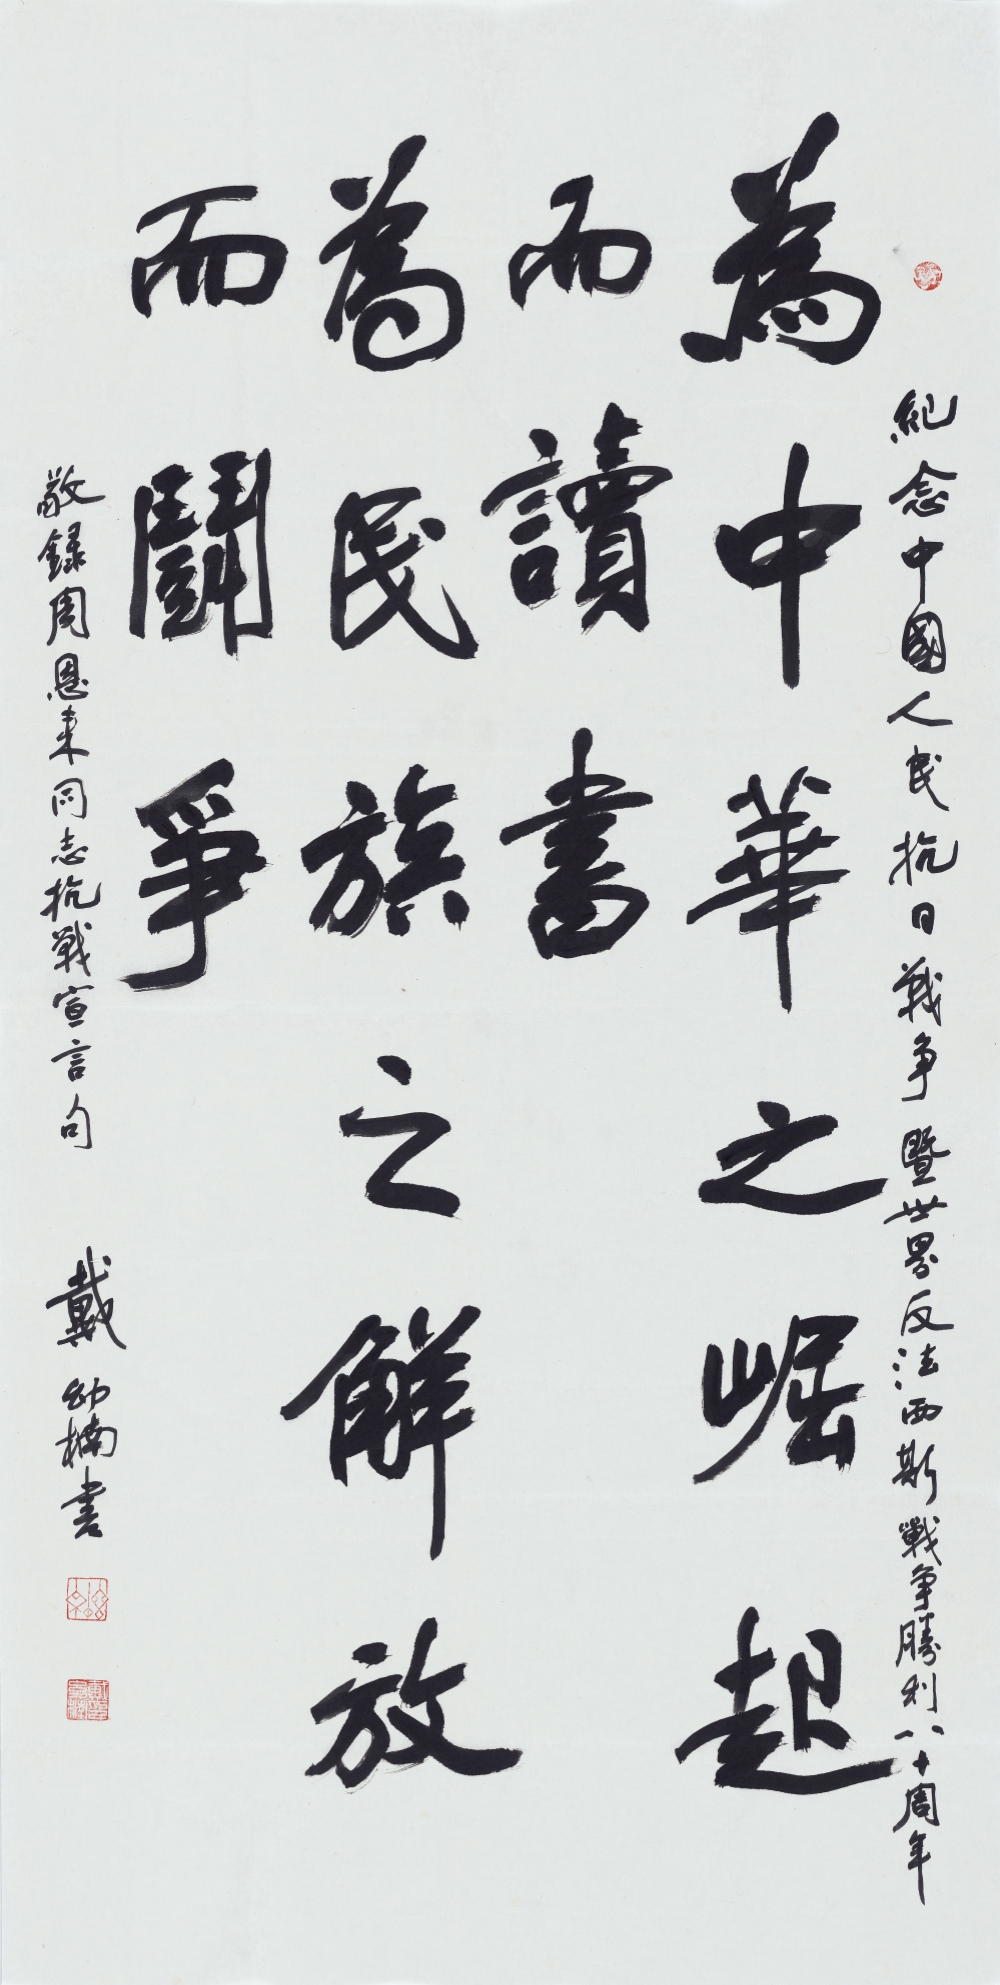 紀念中國人民抗日戰争暨世界反法西斯戰争勝利八十周年
為中華之崛起
而讀書
為民族之解放
而鬪爭
敬録周恩来同志抗戰宣言句
戴幼楠書